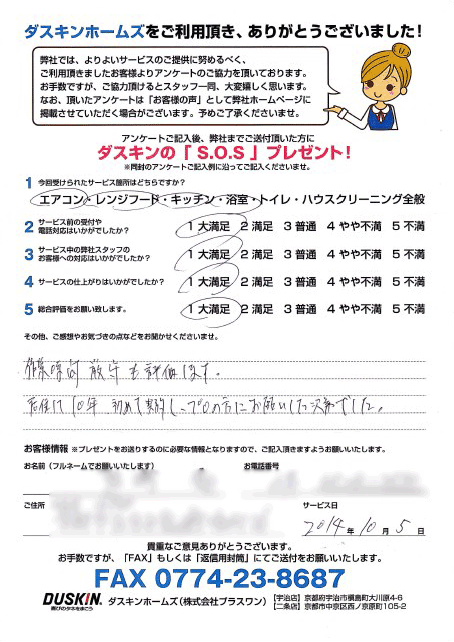 ダスキンホームズをご利用頂き、ありがとうございました!
弊社では、よりよいサービスのご提供に努めるべく、
ご利用頂きましたお客様よりアンケートのご協力を頂いております。
お手数ですが、ご協力頂けるとスタッフ一同、大変嬉しく思います。
なお、頂いたアンケートは「お客様の声」として弊社ホームページに
掲載させていただく場合がございます。予めご了承くださいませ。
アンケートご記入後、弊社までご送付頂いた方に
ダスキンの「 S.O.S 」プレゼント!
※同封のアンケートご記入例に沿ってご記入くださいませ。
1 今回受けられたサービス箇所はどちらですか?
エアコン・レンジフード・キッチン・浴室・トイレ・ハウスクリーニング全般
2 サービス前の受付や
電話対応はいかがでしたか? 1 大満足 2 満足 3 普通 4 やや不満 5 不満
3 サービス中の弊社スタッフの
お客様への対応はいかがでしたか? 1 大満足 2 満足 3 普通 4 やや不満 5 不満
4 サービスの仕上がりはいかがでしたか? 1 大満足 2 満足 3 普通 4 やや不満 5 不満
5 総合評価をお願い致します。 1 大満足 2 満足 3 普通 4 やや不満 5 不満
その他、ご感想やお気づきの点などをお聞かせくださいませ。
作業時間 厳守も評価します。
居住に10年 初めて契約しプロの方にお願いした次第でした。
お客様情報 ※プレゼントをお送りするのに必要な情報となりますので、ご記入頂けますようお願いいたします。
お名前(フルネームでお願いいたします) お電話番号
ご住所 サービス日
2014年10月5日
貴重なご意見ありがとうございます。
お手数ですが、「FAX」もしくは「返信用封筒」にてご送付をお願いいたします。
FAX 0774-23-8687
DUSKIN 喜びのタネをまこう ダスキンホームズ(株式会社プラスワン) 【宇治店】京都府宇治市槇島町大川原4-6
【二条店】京都市中京区西ノ京原町105-2